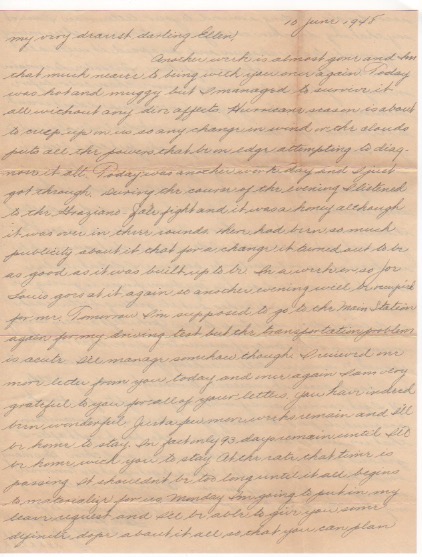 10 June 1948
My very dearest, darling Ellen!
Another week is almost gone and I'm
that much nearer to being with you once again. Today
was hot and muggy but I managed to survive it
all without any dire affects. Hurricane season is about
to creep up on us so any change in wind or the clouds
puts all the powers that be on edge attempting to diag-
nose it all. Today was another work day and I just
got through. During the course of the evening I listened
to the Graziano - Zale fight and it was a honey although
it was over in three rounds. There had been so much
publicity about it that for a change it turned out to be
as good as it was built up to be. In a week or so Joe
Louis goes at it again so another evening will be occupied
for me. Tomorrow I'm supposed to go to the Main Station
again for my driving test but the transportation problem
is acute. I'll manage somehow though. I received one
more letter from you today and once again I am very
grateful to you for all of your letters. You have indeed
been wonderful. Just a few more weeks remain and I'll
be home to stay. In fact only 93 days remain until I'll
be home with you to stay. At the rate that time is
passing it shouldn't be too long until it all begins
to materialize for us. Monday I'm going to put in my
leave request and I'll be able to give you some
definite dope about it all so that you can plan